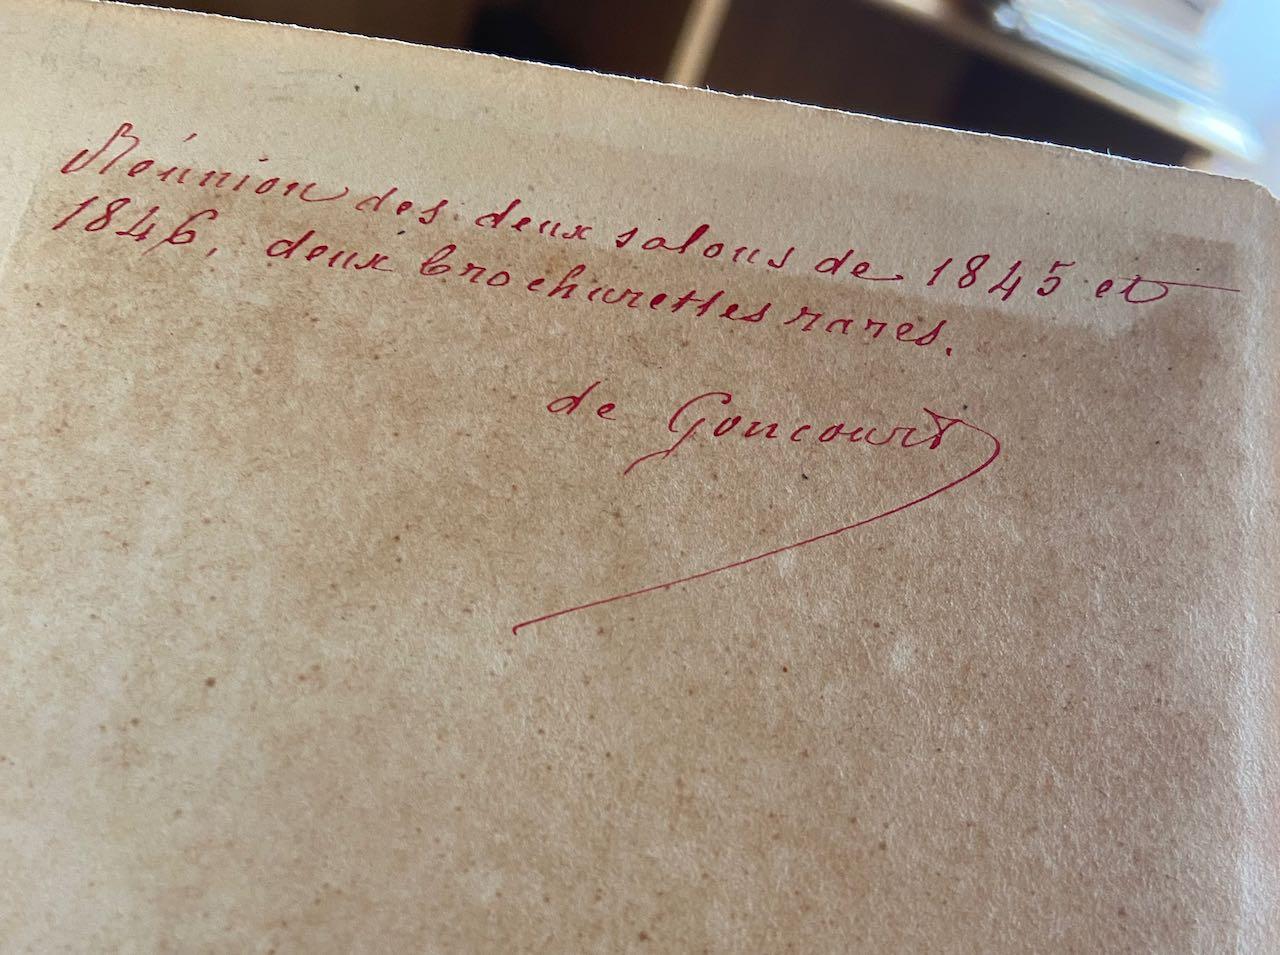 Réunion des deux salons de 1845 et
1846, deux brochurettes rares.
de Goncourt